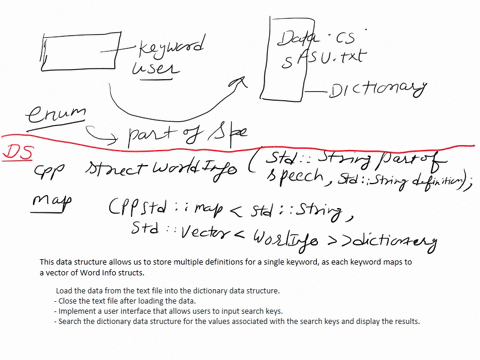 Keyword
user
Data.CS.
SFSU.txt
DICTIONARY
enum
part of Spe
DS
CPP struct WorldInfo (std::string part of
speech, std::string definition);
map
CPPstd::map<std::string,
std::vector<WorlInfo>>dictionary
This data structure allows us to store multiple definitions for a single keyword, as each keyword maps to
a vector of Word Info structs.
Load the data from the text file into the dictionary data structure.
- Close the text file after loading the data.
- Implement a user interface that allows users to input search keys.
- Search the dictionary data structure for the values associated with the search keys and display the results.